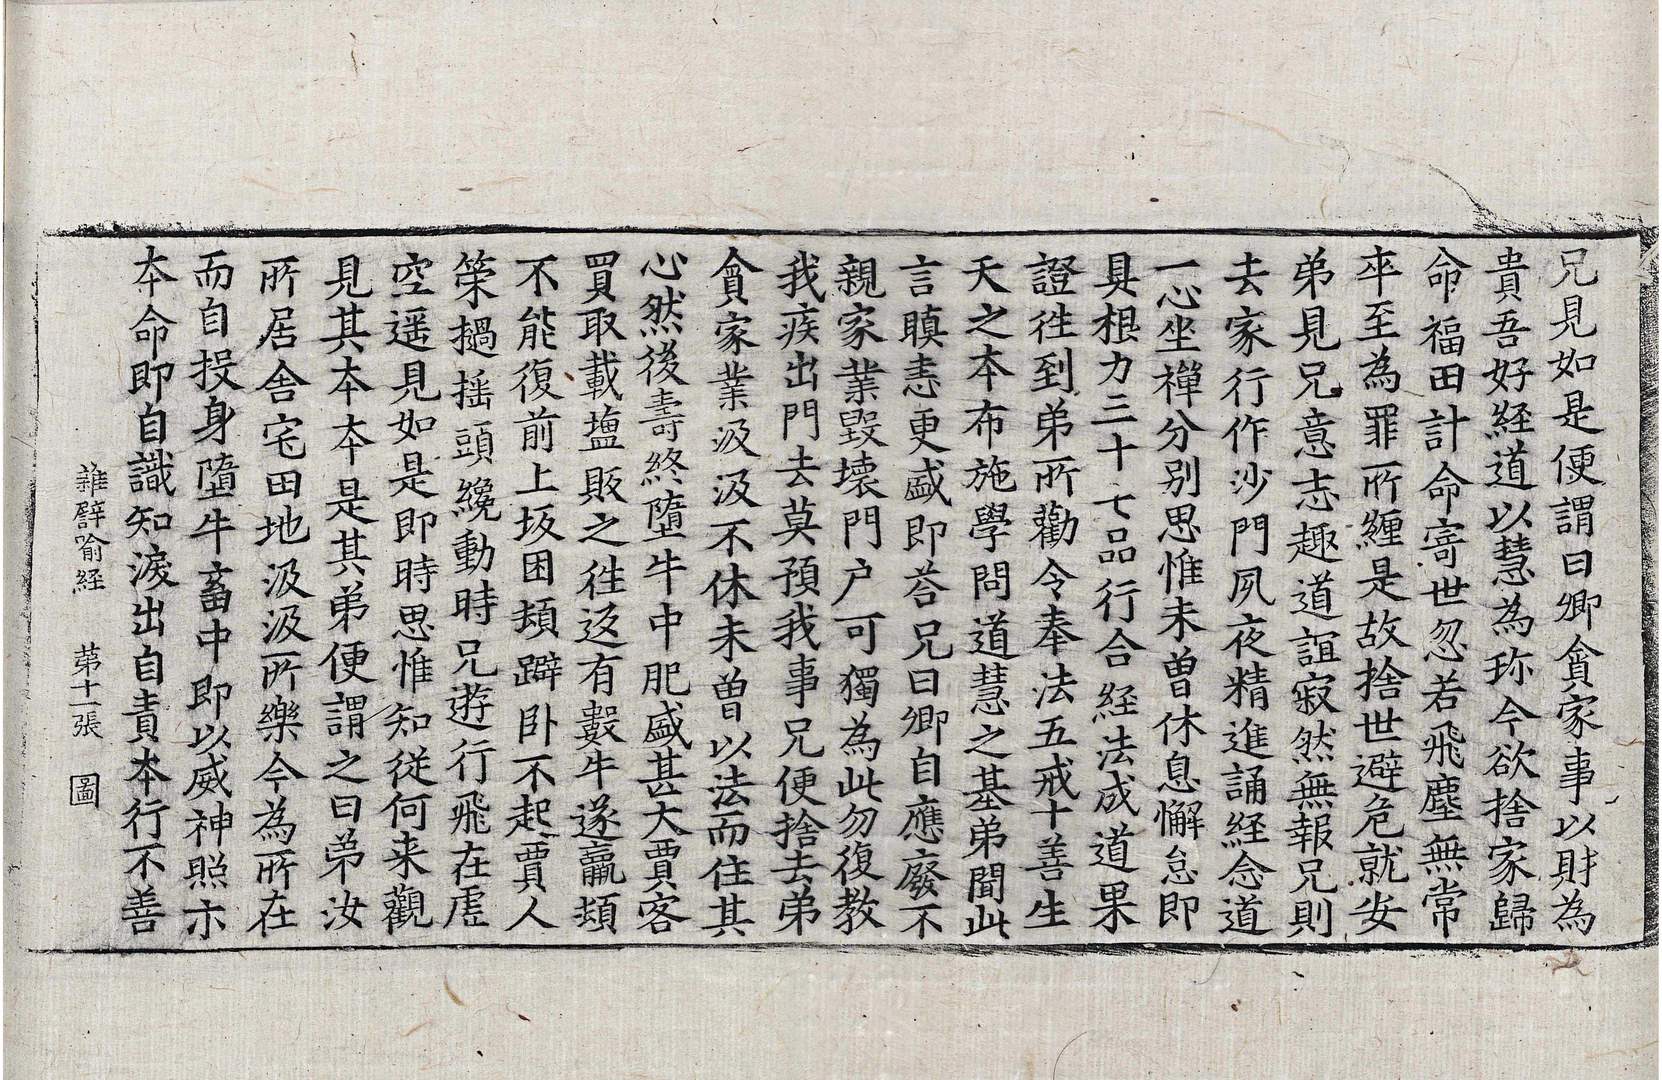 兄見如是便謂曰卿貪家事以財為
貴吾好経道以慧為珎今欲捨家歸
命福田計命寄世忽若飛塵無常
卒至為罪所纏是故捨世避危就安
弟見兄意志趣道誼寂然無報兄則
去家行作沙門夙夜精進誦経念道
一心坐禪分別思惟未曽休息懈怠即
具根力三十七品行合経法成道果
證往到弟所勸令奉法五戒十善生
天之本布施學問道慧之基弟聞此
言瞋恚更盛即荅兄曰卿自應廢不
親家業毀壞門户可獨為此勿復教
我疾出門去莫預我事兄便捨去弟
貪家業汲汲不休未曽以法而住其
心然後壽終墮牛中肥盛甚大賈客
買取載塩販之往返有數牛遂羸頓
不能復前上坂困頓躃卧不起賈人
榮撾揺頭纔動時兄逰行飛在虚
空遥見如是即時思惟知従何来觀
見其本本是其弟便謂之曰弟汝
所居舎宅田地汲汲所樂今為所在
而自投身墮牛畜中即以威神照示
本命即自識知淚出自責本行不善
雜譬喻経 第十一張 圖